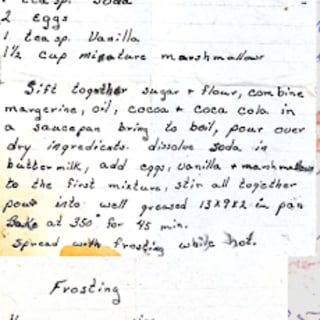 1 teasp. Soda
2 Eggs
1 teasp. Vanilla
1½ cup minature marshmallows
Sift together sugar + flour, combine
margerine, oil, cocoa + coca cola in
a saucepan bring to boil, pour over
dry ingredients. dissolve soda in
buttermilk, add eggs, vanilla + marshmallows
to the first mixture, stir all together
pour into well greased 13x9x2 in pan
Bake at 350° for 45 min.
Spread with frosting while hot.
Frosting